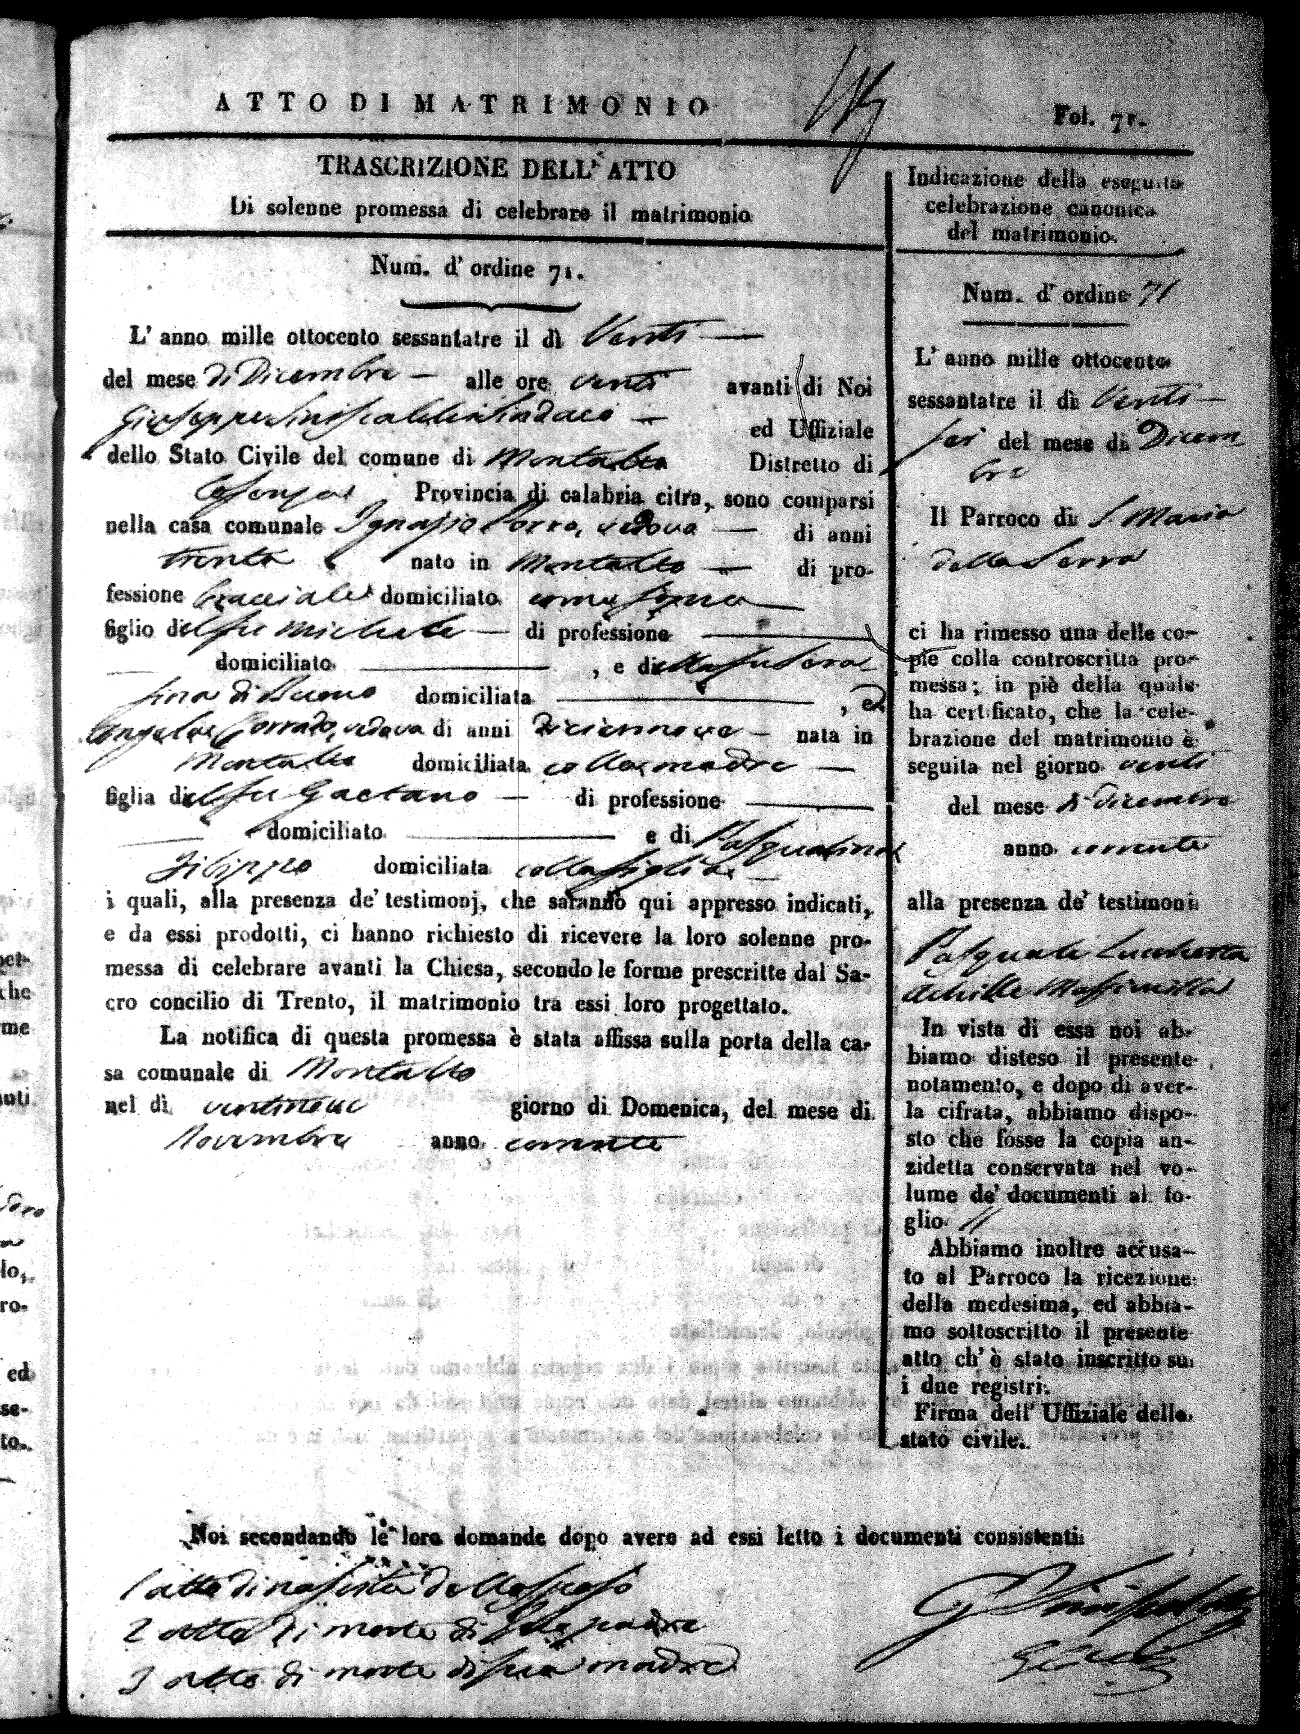 ATTO DI MATRIMONIO
Fol. 71.
TRASCRIZIONE DELL' ATTO
Di solenne promessa di celebrare il matrimonio
Num. d' ordine 71.
L' anno mille ottocento sessantatre il dì Venti
del mese di Dicembre alle ore venti avanti di Noi
Giuseppe Siniscalchi Sindaco ed Uffiziale
dello Stato Civile del comune di Montalto Distretto di
Cosenza Provincia di calabria citra, sono comparsi
nella casa comunale Ignazio Porro, vedovo di anni
trenta nato in Montalto di pro-
fessione bracciale domiciliato come sopra
figlio del fu Michele di professione
domiciliato , e di della fu Sera
fina di Buono domiciliata , ed
Angela Corrado, vedova di anni Diciennove nata in
Montalto domiciliata colla madre
figlia di del fu Gaetano di professione
domiciliato e di Pasqualina
Filippo domiciliata colla figlia
i quali, alla presenza de' testimonj, che saranno qui appresso indicati,
e da essi prodotti, ci hanno richiesto di ricevere la loro solenne pro-
messa di celebrare avanti la Chiesa, secondo le forme prescritte dal Sa-
cro concilio di Trento, il matrimonio tra essi loro progettato.
La notifica di questa promessa è stata affissa sulla porta della ca-
sa comunale di Montalto
nel dì ventinove giorno di Domenica, del mese di
Novembre anno corrente
Indicazione della eseguita
celebrazione canonica
del matrimonio.
Num. d' ordine 71
L' anno mille ottocento
sessantatre il dì Venti
sei del mese di Dicem
bre
Il Parroco di S. Maria
della Serra
ci ha rimesso una delle co-
pie colla controscritta pro-
messa; in piè della quale
ha certificato, che la cele-
brazione del matrimonio è
seguita nel giorno venti
del mese di dicembre
anno corrente
alla presenza de' testimoni
Pasquale Lucchetta
Achille Massimilla
In vista di essa noi ab-
biamo disteso il presente
notamento, e dopo di aver-
la cifrata, abbiamo dispo-
sto che fosse la copia an-
zidetta conservata nel vo-
lume de' documenti al fo-
glio 11
Abbiamo inoltre accusa-
to al Parroco la ricezione
della medesima, ed abbia-
mo sottoscritto il presente
atto ch' è stato inscritto su
i due registri.
Firma dell' Uffiziale dello
stato civile.
Noi secondando le loro domande dopo avere ad essi letto i documenti consistenti
1 atto di nascita dello sposo
2 atto di morte di padre
3 atto di morte di sua madre
G. Siniscalchi